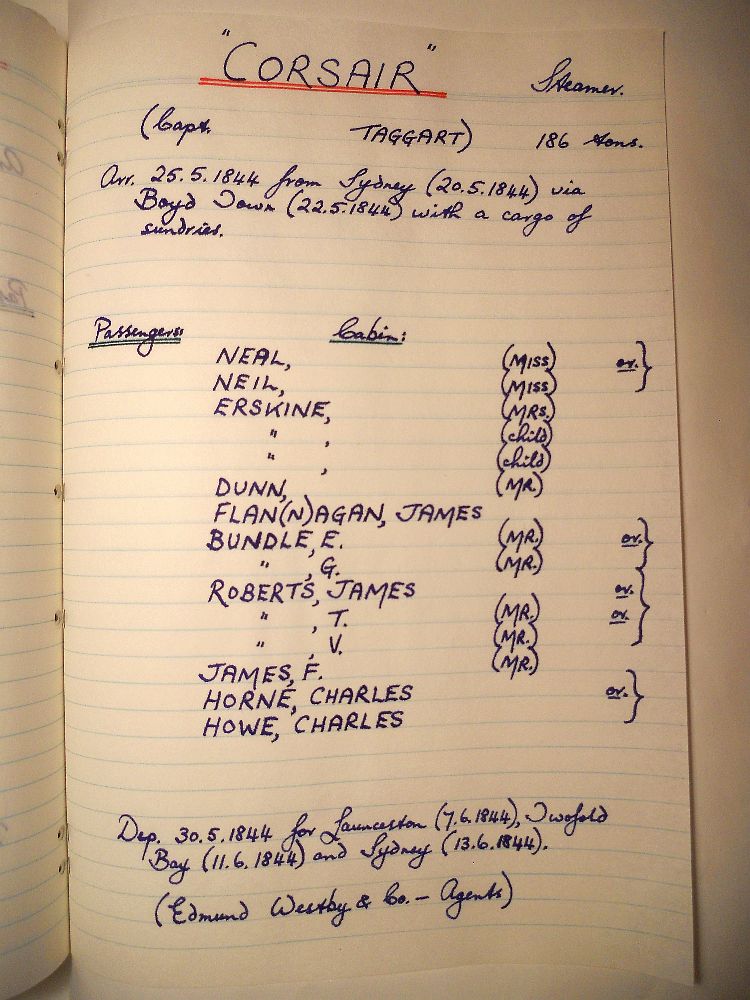 "CORSAIR" Steamer.
(Capt. TAGGART) 186 tons.
Arr. 25.5.1844 from Sydney (20.5.1844) via
Boyd Town (22.5.1844) with a cargo of
sundries.
Passengers: Cabin:
NEAL, (MISS) or. }
NEIL, (MISS)
ERSKINE, (MRS.)
" , (child)
" , (child)
DUNN, (MR.)
FLAN(N)AGAN, JAMES
BUNDLE, E. (MR.) or. }
" , G. (MR.)
ROBERTS, JAMES or. }
" , T. (MR.) or.
" , V. (MR.)
JAMES, F. (MR.)
HORNE, CHARLES or. }
HOWE, CHARLES
Dep. 30.5.1844 for Launceston (7.6.1844), Twofold
Bay (11.6.1844) and Sydney (13.6.1844).
(Edmund Westby & Co. – Agents)